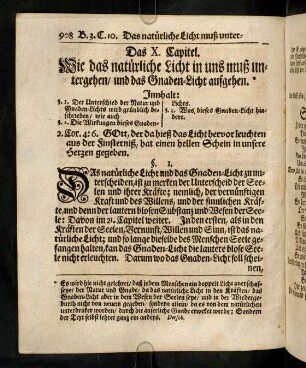 908 B. 3. C. 10. Das natürliche Licht muß unter-
Das X. Capitel.
Wie das natürliche Licht in uns muß un-
tergehen/ und das Gnaden-Licht aufgehen. *
Innhalt:
§. 1. Der Unterschied der Natur und
Gnaden-Lichts wird gründlich be-
schrieben/ wie auch
§. 2. Die Wirkungen dieses Gnaden-
Lichts.
§. 3. Was dieses Gnaden-Licht hin-
dere.
2. Cor. 4: 6. GOtt, der da hieß das Licht hervor leuchten
aus der Finsterniß, hat einen hellen Schein in unsere
Herzen gegeben.
§. 1.
DAs natürliche Licht und das Gnaden-Licht zu un-
terscheiden, ist zu merken der Unterscheid der See-
len und ihrer Kräfte; nemlich, der vernünftigen
Kraft und des Willens, und der sinnlichen Kräf-
te, und denn der lautern blosen Substanz und Wesen der See-
le: Davon im 21. Capitel weiter. In den ersten, als in den
Kräften der Seelen, Vernunft, Willen und Sinn, ist das na-
türliche Licht; und so lange dieselbe des Menschen Seele ge-
fangen halten, kan das Gnaden-Licht die lautere blose See-
le nicht erleuchten. Darum wo das Gnaden-Licht soll schei-
nen,
* Es wird hie nicht gelehret/ daß jedem Menschen ein doppelt Licht anerschaf-
fen/ der Natur und Gnade/ da das natürliche Licht in den Kräften/ das
Gnaden-Licht aber in dem Wesen der Seelen seye/ und in der Wiederge-
burth nicht von neuem gegeben/ sondern allein/ da es von dem natürlichen
unterdrucket worden/ durch die äuserliche Gnade erwecket werde; Sondern
der Text selbst lehret ganz ein anders.